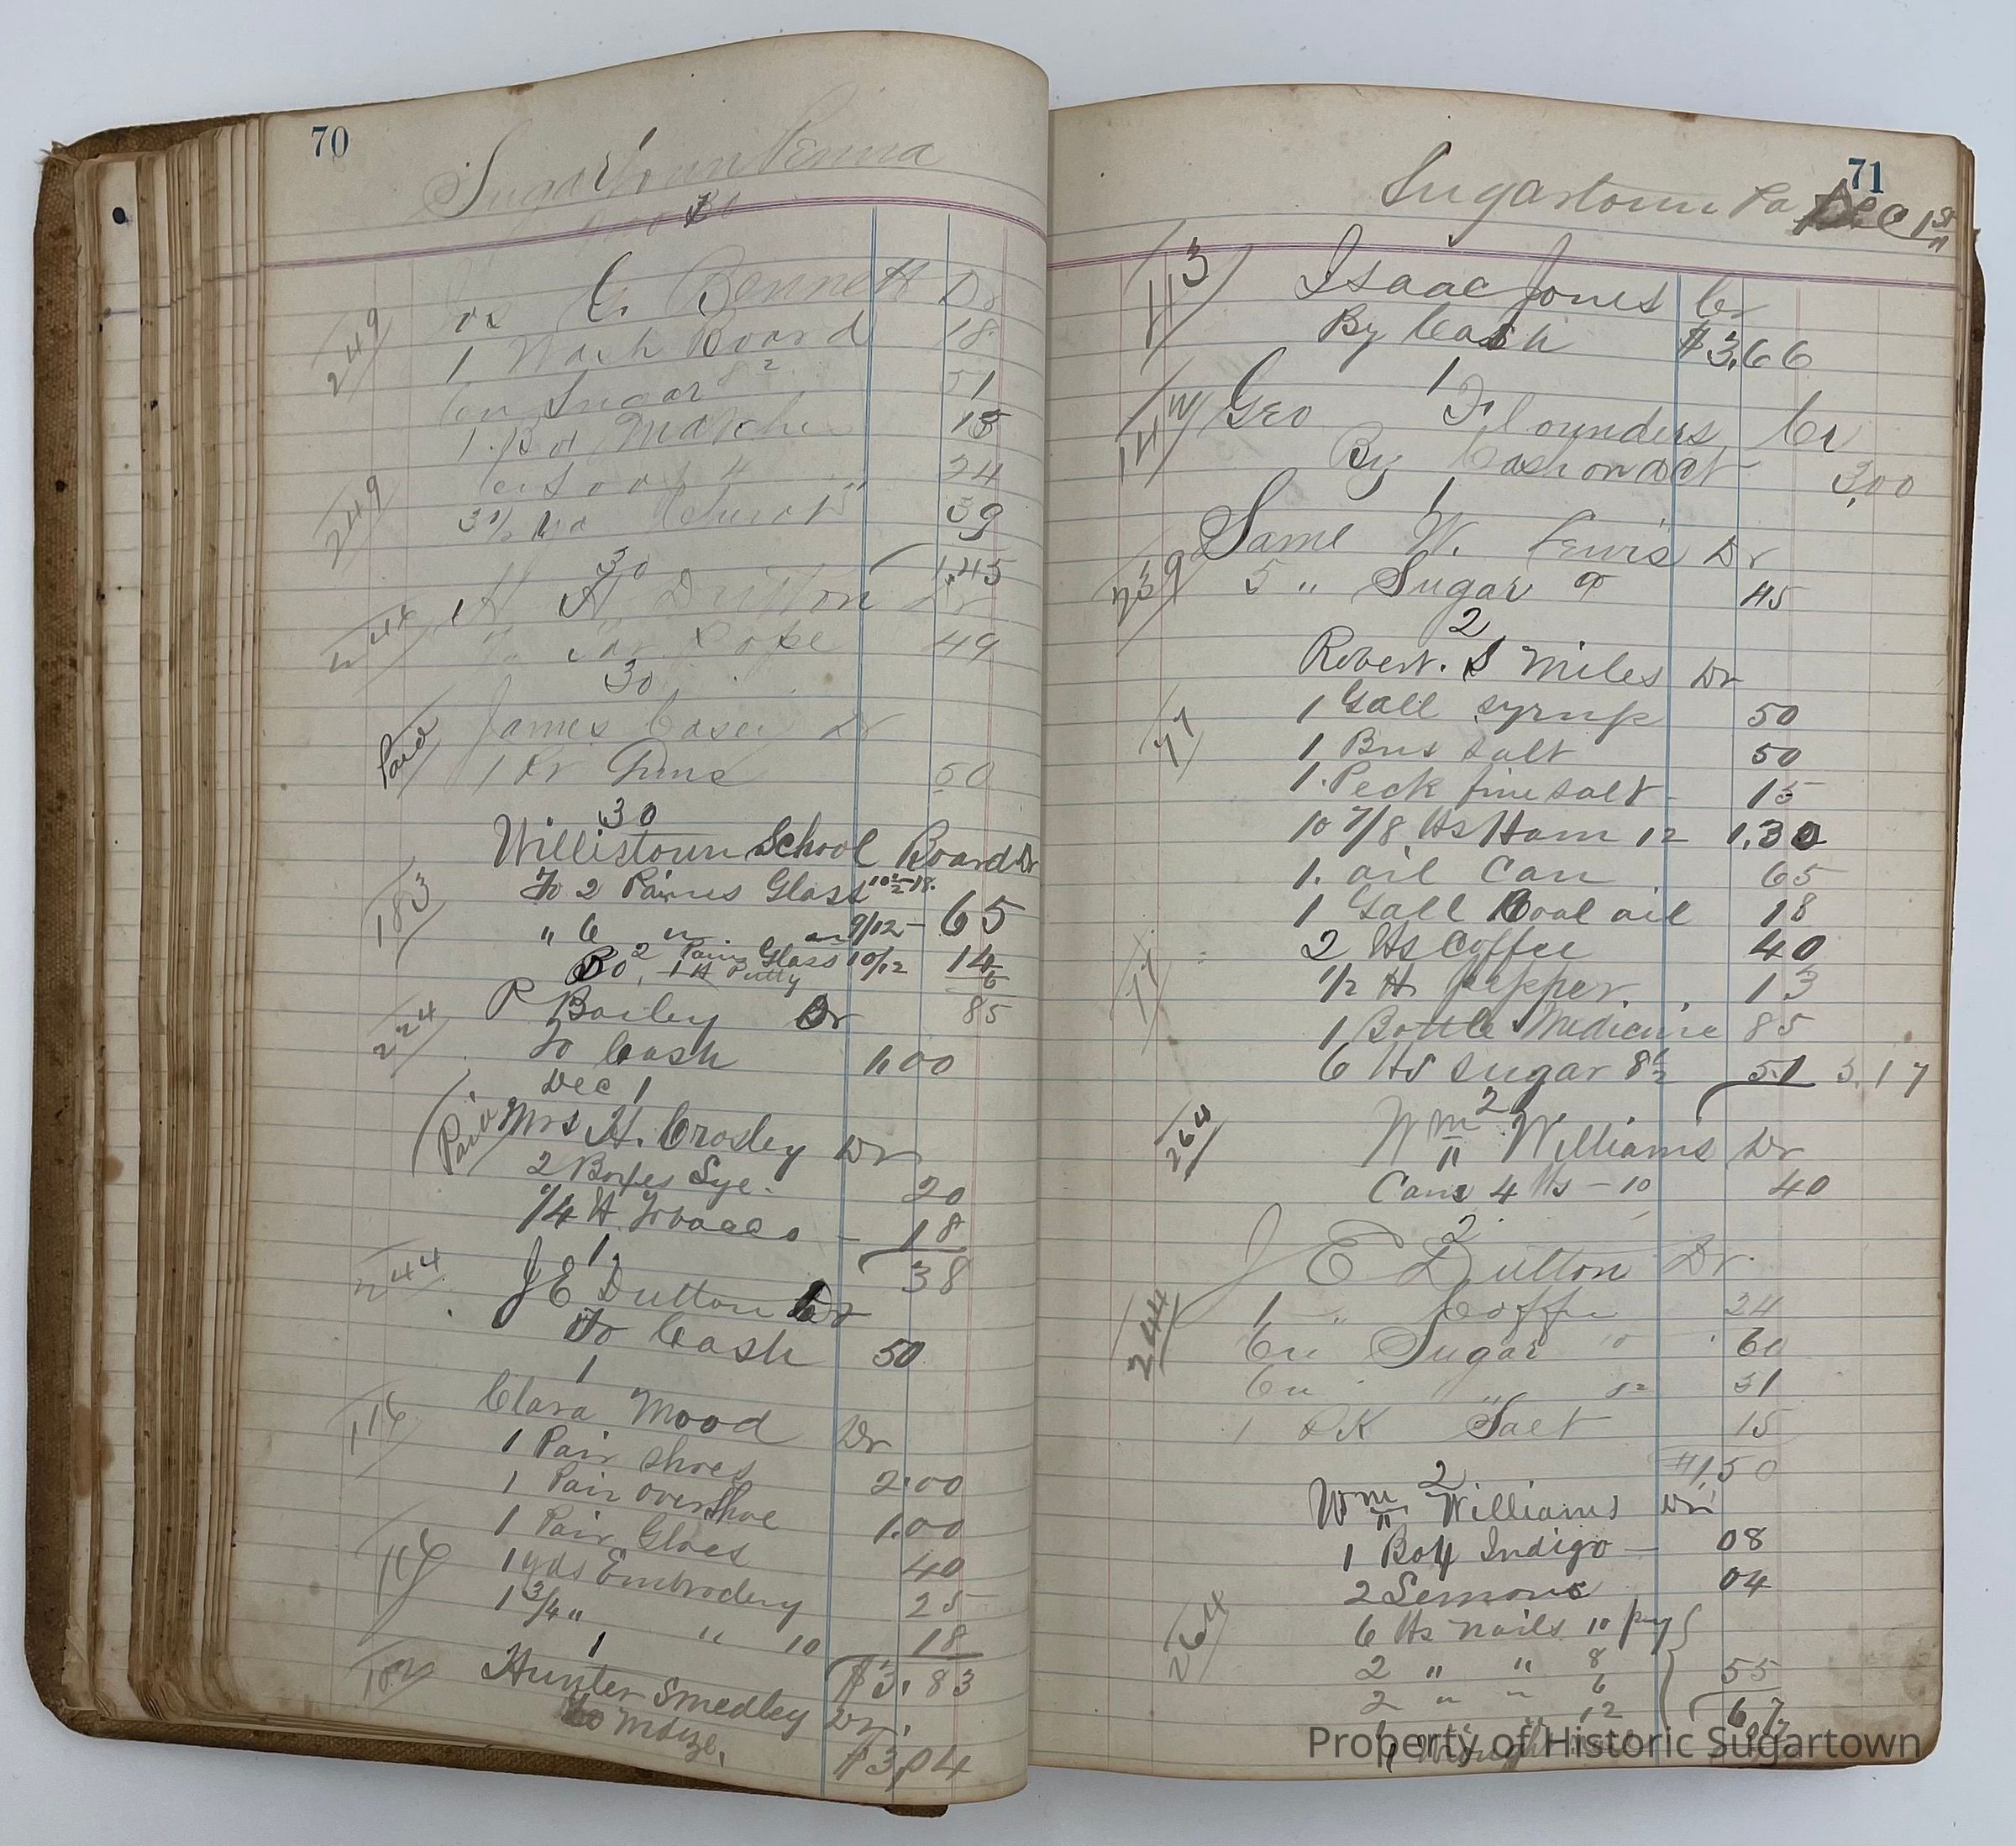 70
Sugartown Penna
30
249
G. Bennett Dr
1 Wash Board 18
6 " Sugar 8 2 51
1 Bx Matches 13
249
24
3 1/2 39
1.45
30
244
H Dutton Dr
Rope 49
30
Paid
James Casey Dr
1 Pr Gums 50
30
Willistown School Board Dr
183
To 2 Paines Glass 10 1/2-18.
" 6 " " 9/12 - 65
Do 2 Pain Glass 10/12 14
1 lb Putty 6
85
224
P Bailey Dr
To Cash 1,00
Dec 1
Paid
Mrs H. Crosley Dr
2 Boxes Lye. 20
1/4 lb Tobacco - 18
38
1
244
J E Dutton Dr
To Cash 50
1
116
Clara Mood Dr
1 Pair Shoes 2.00
1 Pair overshoe 1.00
1 Pair Gloes 40
116
1 yds Embrodery 25
1 3/4 " " 10 18
$3.83
1
182
Hunter Smedley Dr.
To Maize. $3,04
71
Sugartown Pa Dec 1st
113
Isaac Jones Cr
By Cash $3.66
1
Geo Flounders Cr
By Cash on act 3,00
1
239
Saml W. Lewis Dr
5 " Sugar 9 45
2
Robert. S Miles Dr
77
1 Gall syrup 50
1 Bus salt 50
1. Peck fine salt - 15
10 7/8 lbs Ham 12 1.30
1. oil Can 65
1 Gall Coal oil 18
77
2 lbs Coffee 40
1/2 lb pepper. 13
1 Bottle Medicine 85
6 lbs sugar 8 1/2 51 5.17
2
264
Wm Williams Dr
4 lbs - 10 40
2
J E Dutton Dr
244
1 " Coffe 24
6 " Sugar 10 60
6 " " 51
1 PK Salt 15
$1,50
2
Wm Williams Dr
1 Box Indigo - 08
2 Lemons 04
264
6 lbs nails 10 pny
2 " " 8 55
2 " " 6
12 67
Property of Historic Sugartown